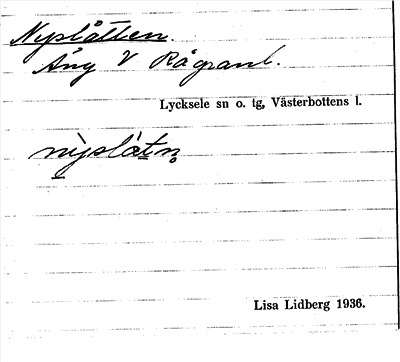 Nyslåtten.
Äng V Rågranl.
Lycksele sn o. tg, Västerbottens l.
nỳslå̀tn̥
Lisa Lidberg 1936.